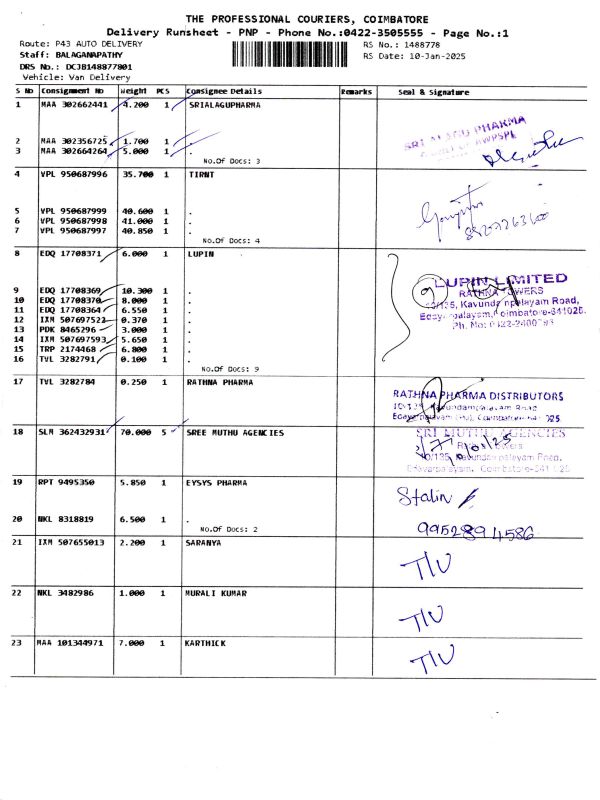 THE PROFESSIONAL COURIERS, COIMBATORE
Delivery Runsheet - PNP - Phone No.:0422-3505555 - Page No.:1
Route: P43 AUTO DELIVERY
RS No.: 1488778
Staff: BALAGANAPATHY
RS Date: 10-Jan-2025
DRS No.: DCJB148877801
Vehicle: Van Delivery
S No Consignment No Weight PCS Consignee Details Remarks Seal & Signature
1 MAA 302662441 4.200 1 SRIALAGUPHARMA
2 MAA 302356725 1.700 1 .
3 MAA 302664264 5.000 1 .
No.Of Docs: 3
SRI ALAGU PHARMA
4 VPL 950687996 35.700 1 TIRNT
5 VPL 950687999 40.600 1 .
6 VPL 950687998 41.000 1 .
7 VPL 950687997 40.850 1 .
No.Of Docs: 4
8 EDQ 17708371 6.000 1 LUPIN
9 EDQ 17708369 10.300 1 .
10 EDQ 17708370 8.000 1 .
11 EDQ 17708364 6.550 1 .
12 IXM 507697522 0.370 1 .
13 PDK 8465296 3.000 1 .
14 IXM 507697593 5.650 1 .
15 TRP 2174468 6.800 1 .
16 TVL 3282791 0.100 1 .
No.Of Docs: 9
LUPIN LIMITED
RATHNA TOWERS
Road,
Coimbatore-641025.
Ph. No: 0422-2400
17 TVL 3282784 0.250 1 RATHNA PHARMA
RATHNA PHARMA DISTRIBUTORS
18 SLM 362432931 70.000 5 SREE MUTHU AGENCIES
SRI MUTHU AGENCIES
10/01/25
19 RPT 9495350 5.850 1 EYSYS PHARMA
20 NKL 8318819 6.500 1 .
No.Of Docs: 2
Stalin
9952894586
21 IXM 507655013 2.200 1 SARANYA
T/U
22 NKL 3482986 1.000 1 MURALI KUMAR
T/U
23 MAA 101344971 7.000 1 KARTHICK
T/U